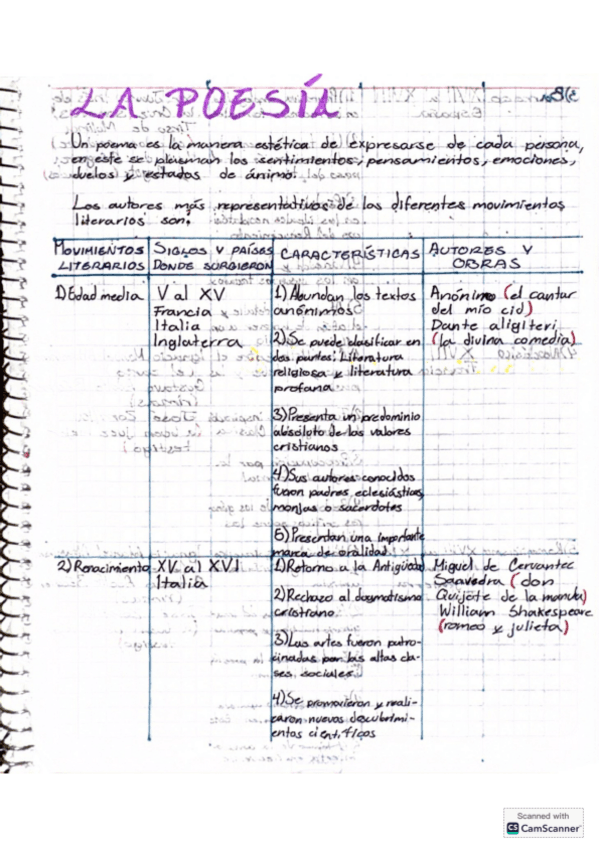 LA POESÍA
Un poema es la manera estética de expresarse de cada persona,
en este se plasman los sentimientos, pensamientos, emociones,
duelos y estados de ánimo.
Los autores más representativos de los diferentes movimientos
literarios son:
MOVIMIENTOS LITERARIOS
SIGLOS Y PAÍSES DONDE SURGIERON
CARACTERÍSTICAS
AUTORES Y OBRAS
1) Edad media
V al XV
Francia
Italia
Inglaterra
1) Abundan los textos
anónimos
2) Se puede clasificar en
dos partes: Literatura
religiosa y literatura
profana
3) Presenta un predominio
absoluto de los valores
cristianos
4) Sus autores conocidos
fueron padres eclesiásticos,
monjas o sacerdotes
5) Presentan una importante
marca de oralidad
Anónimo (el cantar
del mío cid)
Dante aligiteri
(la divina comedia)
2) Renacimiento
XV al XVI
Italia
1) Retorno a la Antigüedad
2) Rechazo al dogmatismo
cristiano
3) Las artes fueron patro-
cinadas por las altas cla-
ses sociales
4) Se promovieron y reali-
zaron nuevos descubrimi-
entos científicos
Miguel de Cervantes
Saavedra (don
Quijote de la mancha)
William Shakespeare
(romeo y julieta)
Scanned with
CS CamScanner